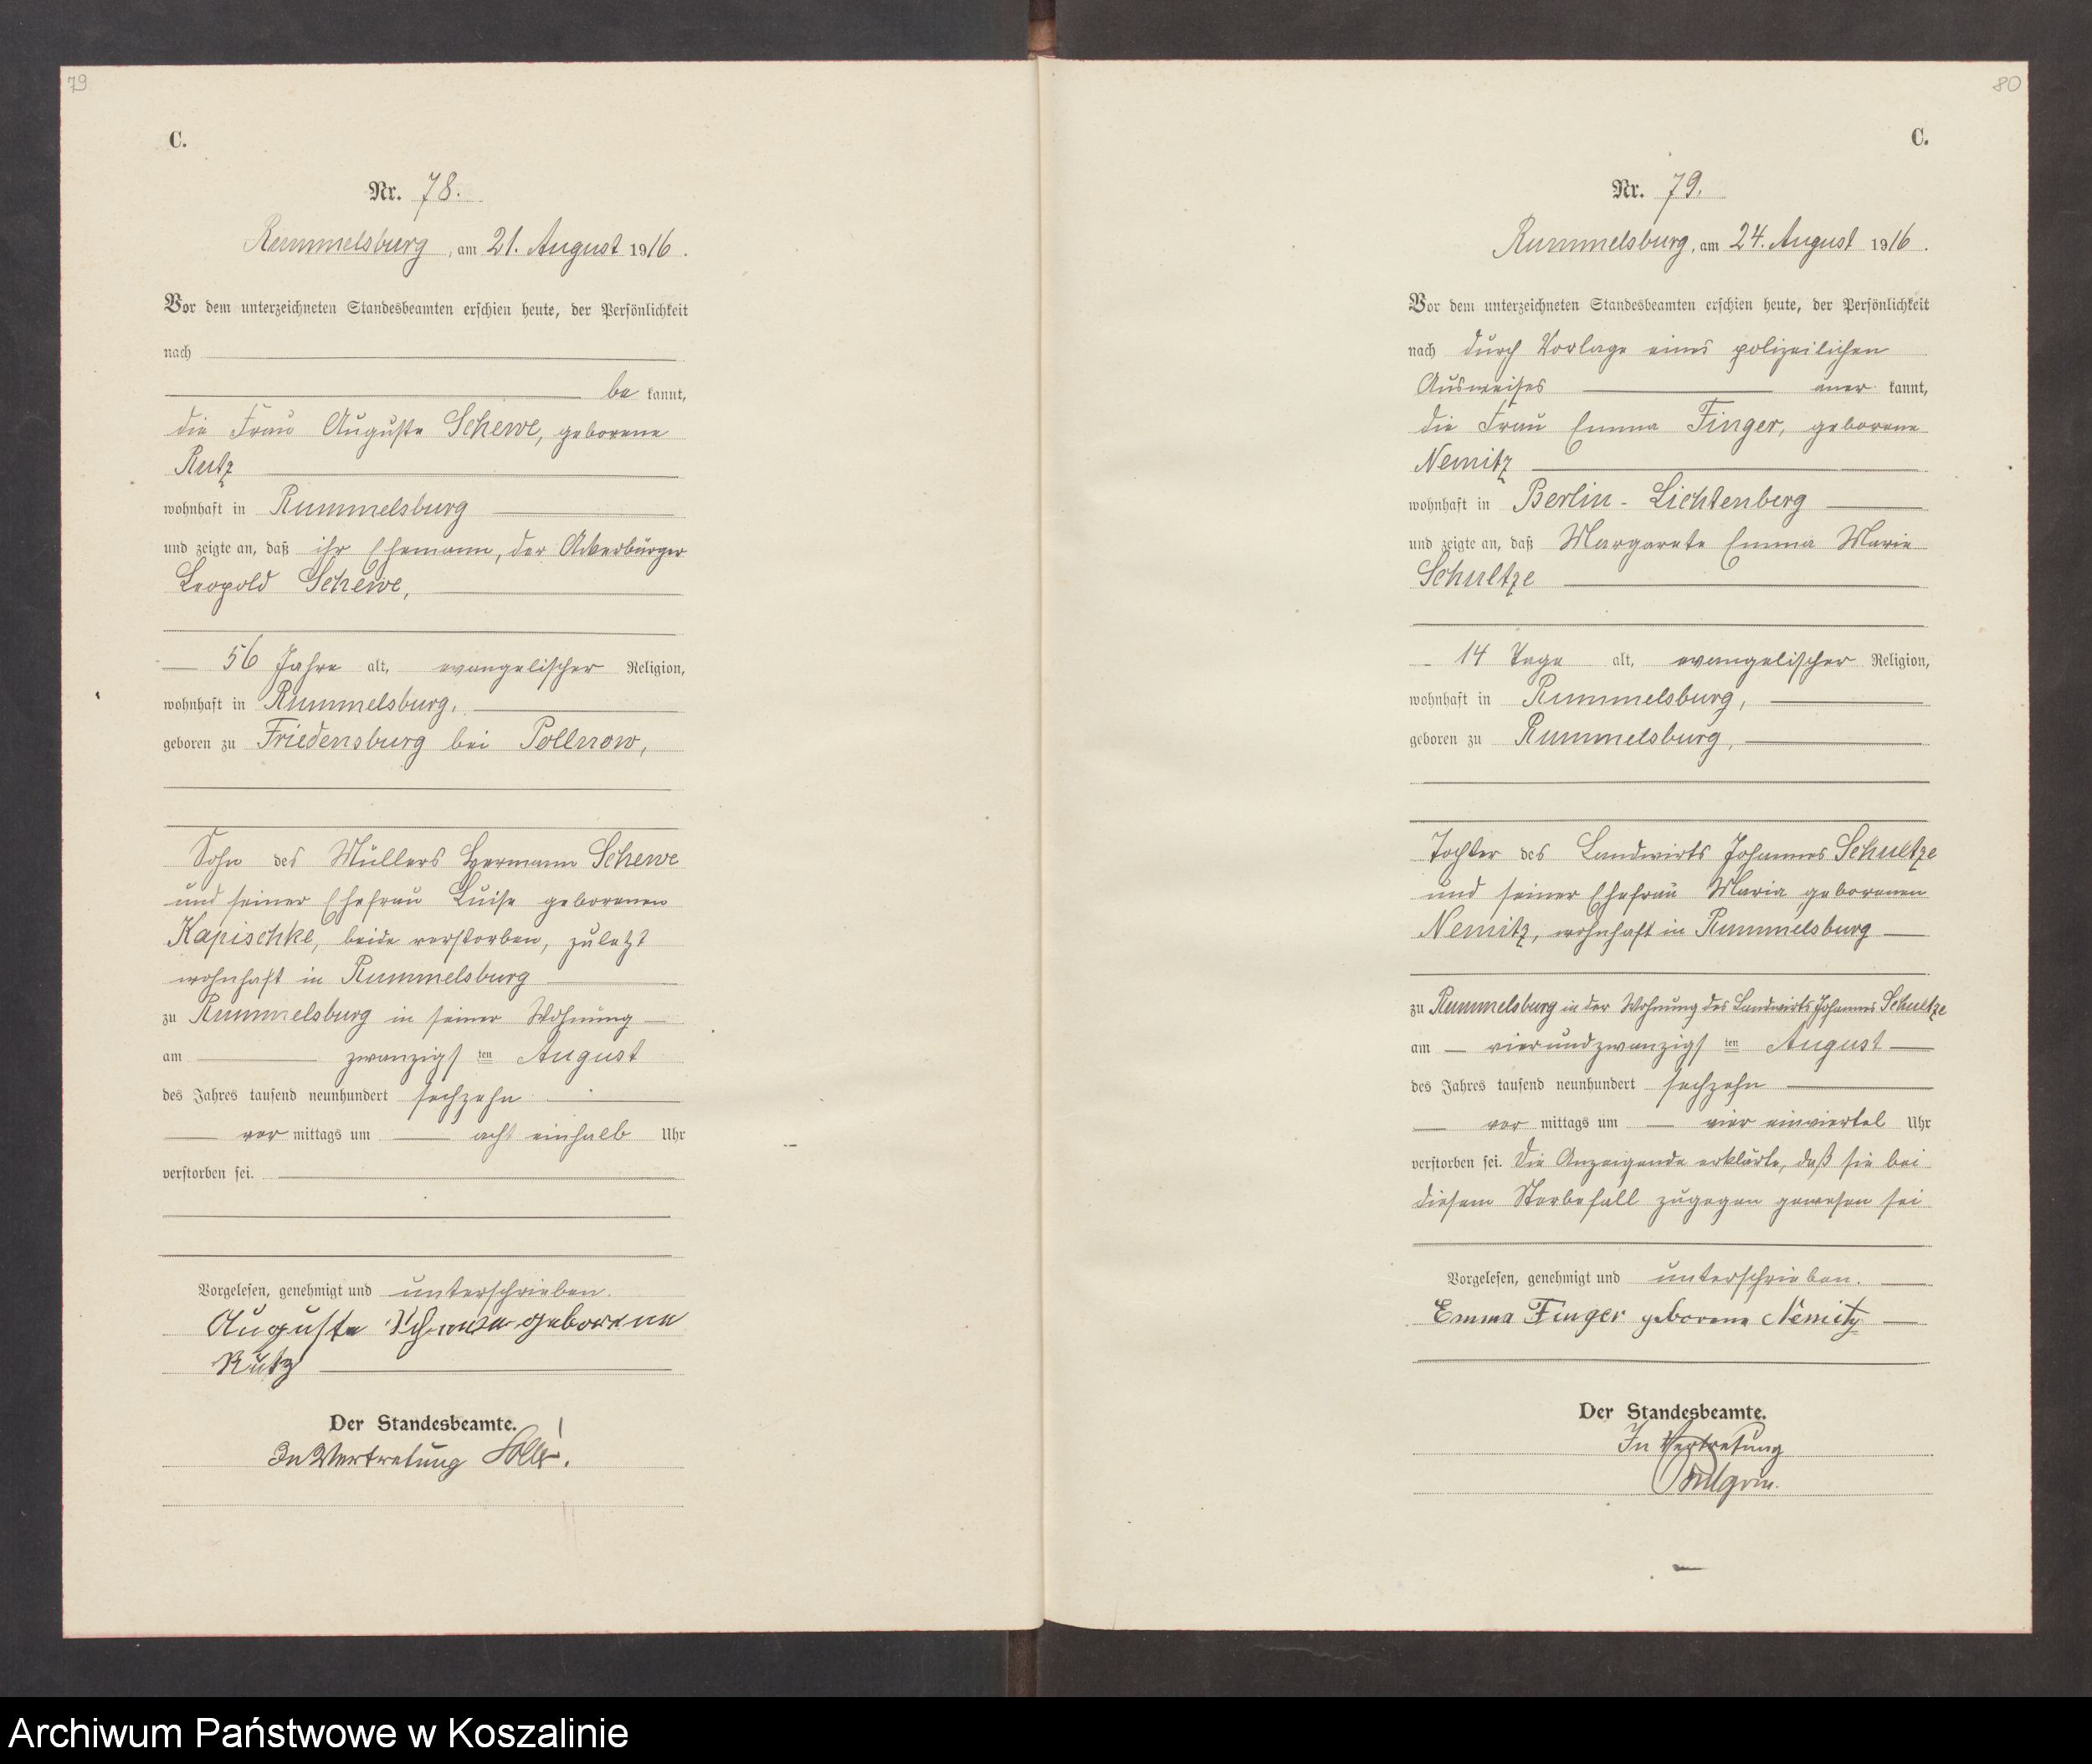 79
C.
Nr. 78.
Rummelsburg, am 21. August 1916.
Vor dem unterzeichneten Standesbeamten erschien heute, der Persönlichkeit
nach
be kannt,
die Frau Auguste Schewe, geborene
Rutz
wohnhaft in Rummelsburg
und zeigte an, daß ihr Ehemann, der Ackerbürger
Leopold Schewe,
56 Jahre alt, evangelischer Religion,
wohnhaft in Rummelsburg,
geboren zu Friedensburg bei Pollnow,
Sohn des Müllers Hermann Schewe
und seiner Ehefrau Luise geborenen
Kapischke, beide verstorben, zuletzt
wohnhaft in Rummelsburg
zu Rummelsburg in seiner Wohnung
am zwanzigsten August
des Jahres tausend neunhundert sechzehn
vor mittags um acht einhalb Uhr
verstorben sei.
Vorgelesen, genehmigt und unterschrieben.
Auguste Schewe geborene
Rutz
Der Standesbeamte.
In Vertretung
80
C.
Nr. 79.
Rummelsburg, am 24. August 1916.
Vor dem unterzeichneten Standesbeamten erschien heute, der Persönlichkeit
nach durch Vorlage eines polizeilichen
Ausweises aner kannt,
die Frau Emma Finger, geborene
Nemitz
wohnhaft in Berlin-Lichtenberg
und zeigte an, daß Margarete Emma Marie
Schultze
14 Tage alt, evangelischer Religion,
wohnhaft in Rummelsburg,
geboren zu Rummelsburg,
Tochter des Landwirts Johannes Schultze
und seiner Ehefrau Maria geborenen
Nemitz, wohnhaft in Rummelsburg
zu Rummelsburg in der Wohnung des Landwirts Johannes Schultze
am vierundzwanzigsten August
des Jahres tausend neunhundert sechzehn
vor mittags um vier einviertel Uhr
verstorben sei. Die Anzeigende erklärte, daß sie bei
diesem Sterbefall zugegen gewesen sei
Vorgelesen, genehmigt und unterschrieben.
Emma Finger geborene Nemitz
Der Standesbeamte.
In Vertretung
Archiwum Państwowe w Koszalinie